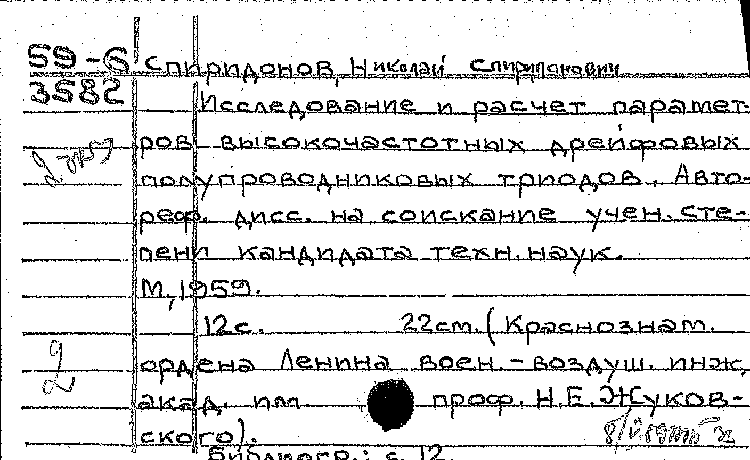 59-6 Спиридонов, Николай Спиридонович
3582
Исследование и расчет парамет-
2 экз
ров высокочастотных дрейфовых
полупроводниковых триодов. Авто-
реф. дисс. на соискание учен. сте-
пени кандидата техн. наук.
М., 1959.
12с. 22см. (Краснознам.
2
ордена Ленина воен.-воздуш. инж.
акад. им. проф. Н.Е. Жуков-
ского).
Библиогр.: с. 12.